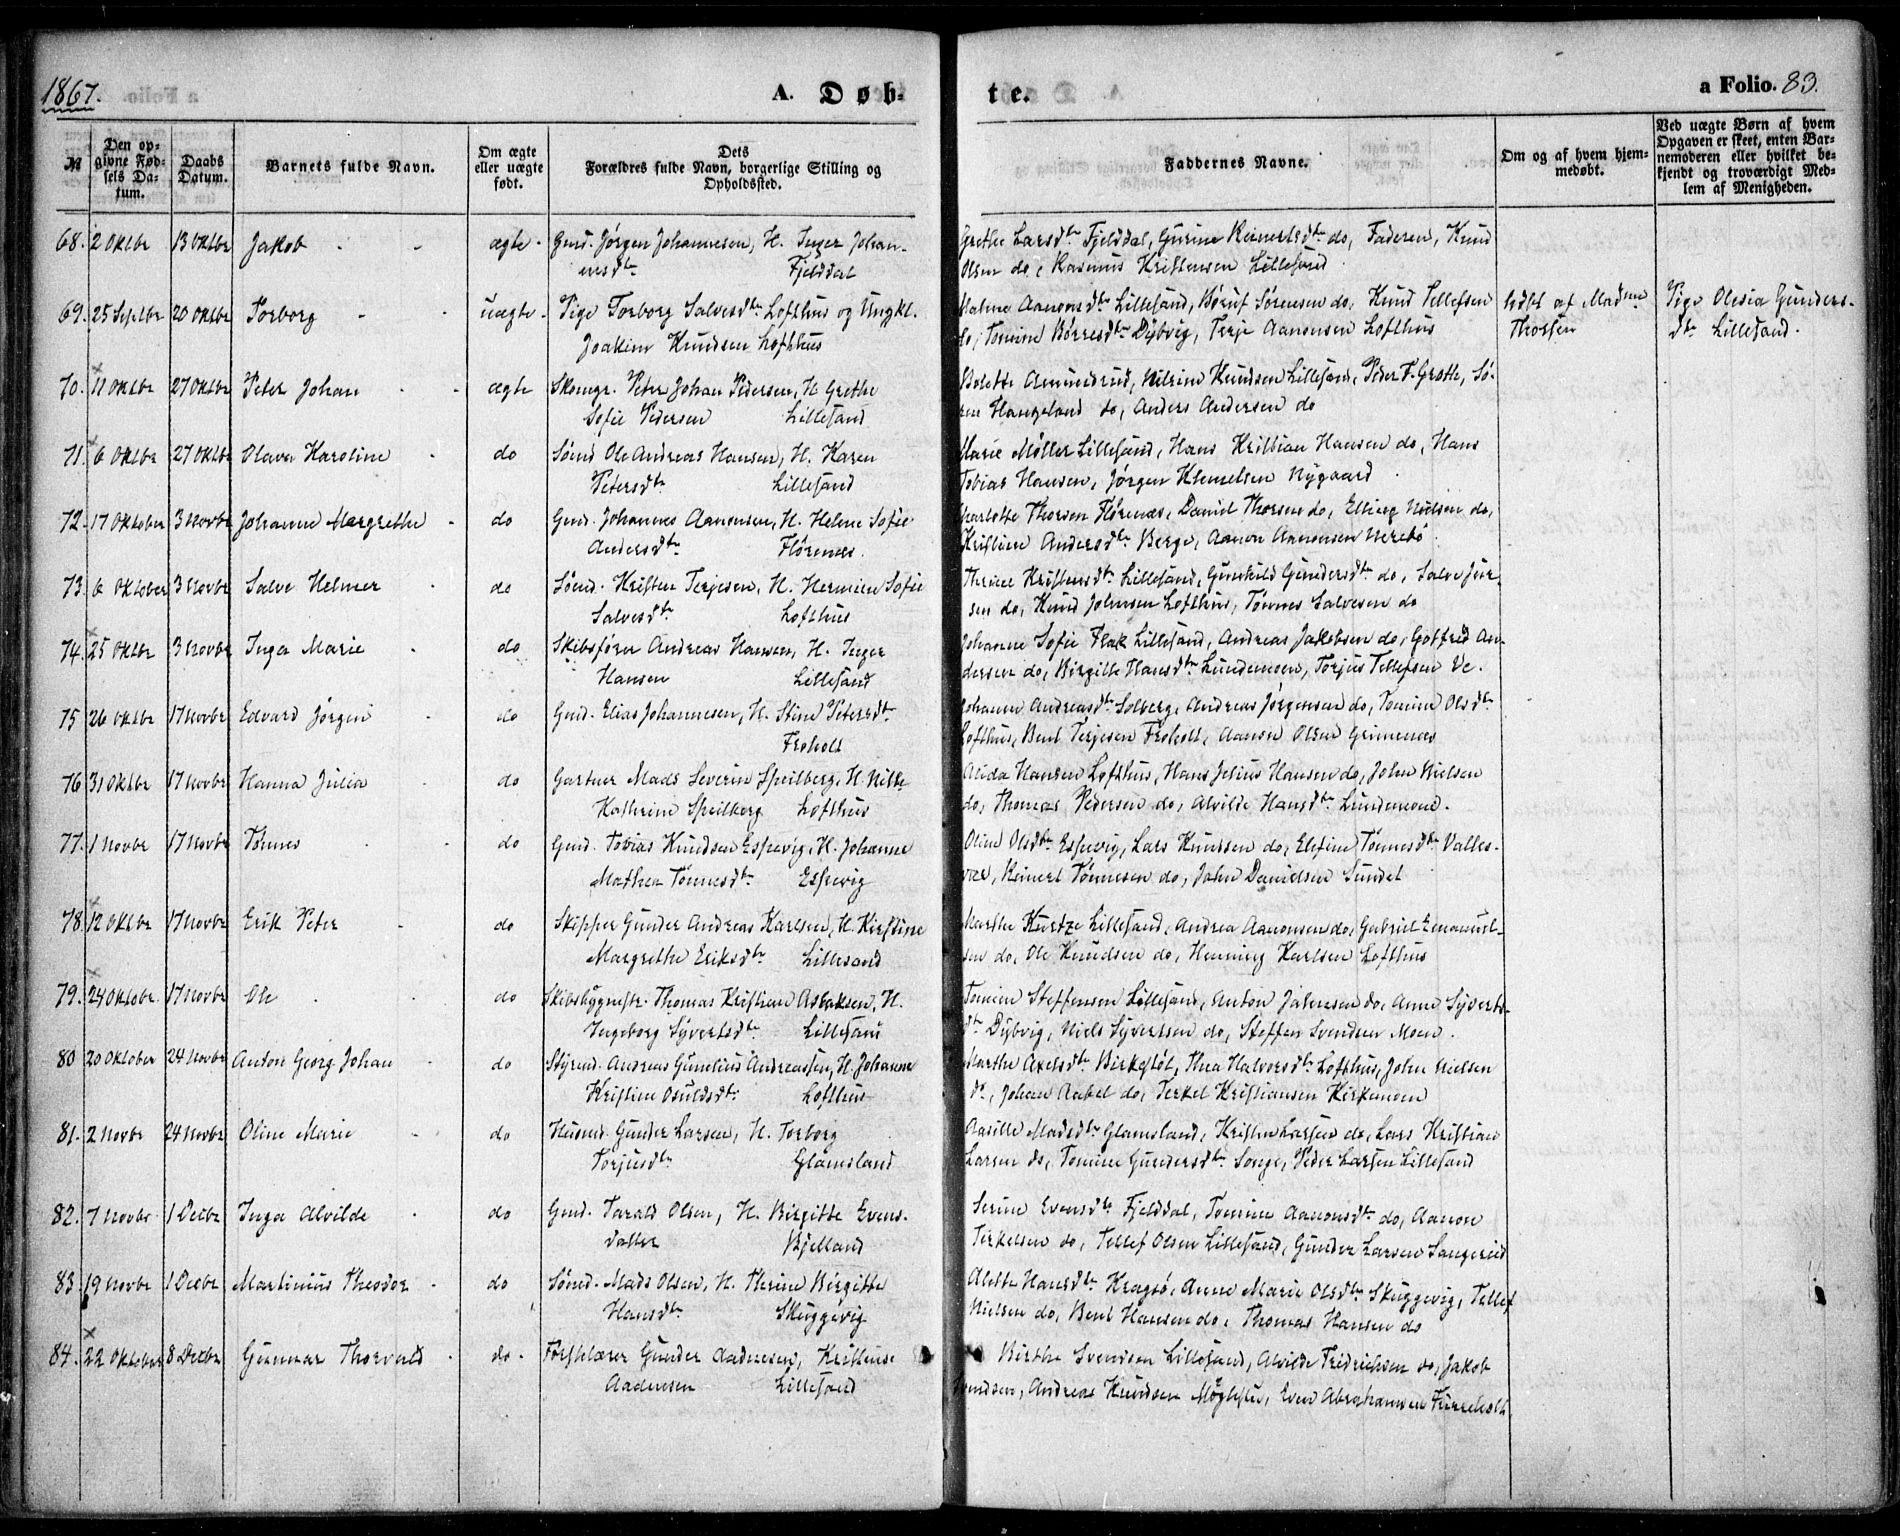 1867.
A. Døb-
№
Den opgivne Fødsels Datum.
Daabs Datum.
Barnets fulde Navn.
Om ægte eller uægte født.
Dets Forældres fulde Navn, borgerlige Stilling og Opholdssted.
68. 2 Oktbr 13 Oktbr Jakob ægte Gmd. Jørgen Johannesen, H. Inger Johan-
nesdtr Fjelddal
69. 25 Septbr 20 Oktbr Torborg uægte Pige Torborg Salvesdtr Lofthus og Ungkl.
Joakim Knudsen Lofthus
70. 11 Oktbr 27 Oktbr Peter Johan ægte Skomgr. Peter Johan Pedersen, H. Grethe
Sofie Pedersen Lillesand
71. 6 Oktbr 27 Oktbr Olava Karoline do Sømd Ole Andreas Hansen, H. Karen
Petersdtr Lillesand
72. 17 Oktober 3 Novbr Johanne Margrethe do Gmd. Johannes Aanonsen, H. Helene Sofie
Andersdtr Flørenæs.
73. 6 Oktober 3 Novbr Salve Helmer do Sømd. Kristen Terjesen, H. Hermine Sofie
Salvesdtr Lofthus
74. 25 Oktbr 3 Novbr Inga Marie do Skibsfører Andreas Hansen, H. Inger
Hansen Lillesand
75 26 Oktbr 17 Novbr Edvard Jørgen do Gmd. Elias Johannesen, H. Stine Petersdtr
Froholt
76 31 Oktbr 17 Novbr Hanna Julia do Gartner Mads Severin Speilberg, H. Nille
Kathrine Speilberg Lofthus
77. 1 Novbr 17 Novbr Tønnes do Gmd. Tobias Knudsen Espevig, H. Johanne
Mathea Tønnesdtr Espevig
78. 12 Oktbr 17 Novbr Erik Peter do Skipper Gunder Andreas Karlsen, H. Kirstine
Margrethe Eriksdtr Lillesand
79. 24 Oktober 17 Novbr Ole do Skibsbyggmstr. Thomas Kristian Aslaksen, H.
Ingeborg Syvertsdtr Lillesand
80 20 Oktober 24 Novbr Anton Georg Johan do Styrmd. Andreas Gunelius Andreassen, H. Johanne
Kristine Osuldsdtr Lofthus
81. 2 Novbr 24 Novbr Oline Marie do Husmd. Gunder Larsen, H. Torborg
Torjusdtr Glamsland
82. 7 Novbr 1 Decbr Inga Alvilde do Gmd. Tarald Olsen, H. Birgitte Evens-
datter Kjelland
83. 19 Novbr 1 Decbr Martinius Theodor do Sømd. Mads Olsen, H. Thrine Birgitte
Hansdtr Skuggevig
84. 22 Oktober 8 Decbr Gunnar Thorvald do Gunder Aadnesen, Kristense
Aadnesen Lillesand
te.
a Folio. 83.
Faddernes Navne.
Om og af hvem hjemmedøbt.
Ved uægte Børn af hvem Opgaven er skeet, enten Barnemoderen eller hvilket bekjendt og troværdigt Medlem af Menigheden.
Grethe Larsdtr Fjelddal, Gurine Reinertsdtr do, Faderen, Knud
Olsen do, Rasmus Kristensen Lillesand
Malene Aanonsdtr Lillesand, Børuf Sørensen do, Knud Tellefsen
do, Tomine Børresdtr Dybvig, Terje Aanonsen Lofthus
døbt af Madme Thorsen
Pige Olesia Gundersdtr Lillesand.
Bolette Amundrud, Nilsine Knudsen Lillesand, Peder F. Grøthe, Sø-
ren Haugeland do, Anders Andersen do
Marie Møller Lillesand, Hans Kristian Hansen do, Hans
Tobias Hansen, Jørgen Klemetsen Nygaard
Charlotte Thorsen Flørenæs, Daniel Thorsen do, Elling Nielsen do,
Kristine Andersdtr Berge, Aanon Aanonsen Merebø
Thrine Kristensdtr Lillesand, Gunhild Gundersdtr do, Salve Jur-
sen do, Knud Johnsen Lofthus, Tønnes Salvesen do
Johanne Sofie Flak Lillesand, Andreas Jakobsen do, Gotfred An-
dersen do, Birgitte Hansdtr Lundemoen, Torjus Tellefsen Ve.
Johanne Andreasdtr Solberg, Andreas Jørgensen do, Tomine Olsdtr
Lofthus, Bent Terjesen Froholt, Aanon Olsen Grimenæs
Alida Hansen Lofthus, Hans Julius Hansen do, John Nielsen
do, Thomas Pedersen do, Alvilde Hansdtr Lundemoen.
Oline Olsdtr Espevig, Lars Knudsen do, Elefine Tønnesdtr Valles-
vær, Reinert Tønnesen do, John Danielsen Sundet
Marthe Kurtze Lillesand, Andrea Aanonsen do, Gabriel Emanuel-
sen do, Ole Knudsen do, Henning Karlsen Lofthus
Tomine Steffensen Lillesand, Anton Jakobsen do, Anne Syverts-
dtr Dybvig, Niels Syvertsen do, Steffen Svendsen Moen.
Marthe Axelsdtr Birkestøl, Thea Halvorsdtr Lofthus, John Nielsen
do, Johan Aabel do, Terkel Kristiansen Kirkemoen
Aasille Madsdtr Glamsland, Kristen Larsen do, Lars Kristian
Larsen do, Tomine Gundersdtr Songe, Peder Larsen Lillesand
Serine Evensdtr Fjelddal, Tomine Aanonsdtr do, Aanon
Terkelsen do, Tellef Olsen Lillesand, Gunder Larsen Sangereid
Alette Hansdtr Kragsø, Anne Marie Olsdtr Skuggevig, Tellef
Nielsen do, Bent Hansen do, Thomas Hansen do
Birthe Svendsen Lillesand, Alvilde Fredrichsen do, Jakob
Svendsen, Andreas Knudsen Møglestu, Even Abrahamsen